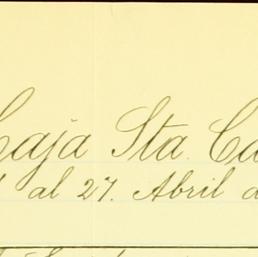 Caja Sta. Ca
al 27. Abril d